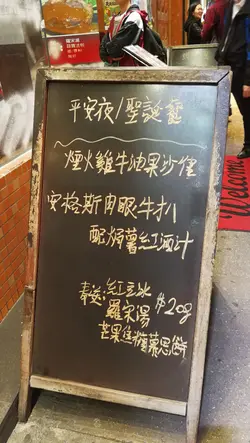 平安夜/聖誕餐
煙火雞牛油果沙律
安格斯肉眼牛扒
配焗薯紅酒汁
奉送:紅豆冰
羅宋湯
$208
芒果焦糖慕思餅
Welcome